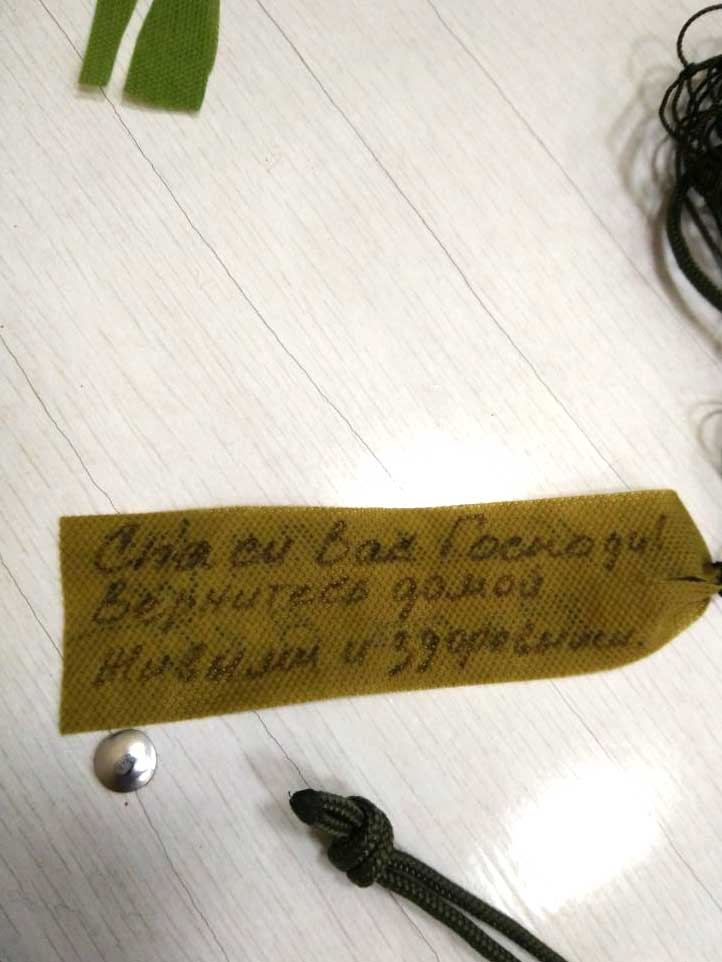 Спаси вас Господи!
Вернитесь домой
живыми и здоровыми.